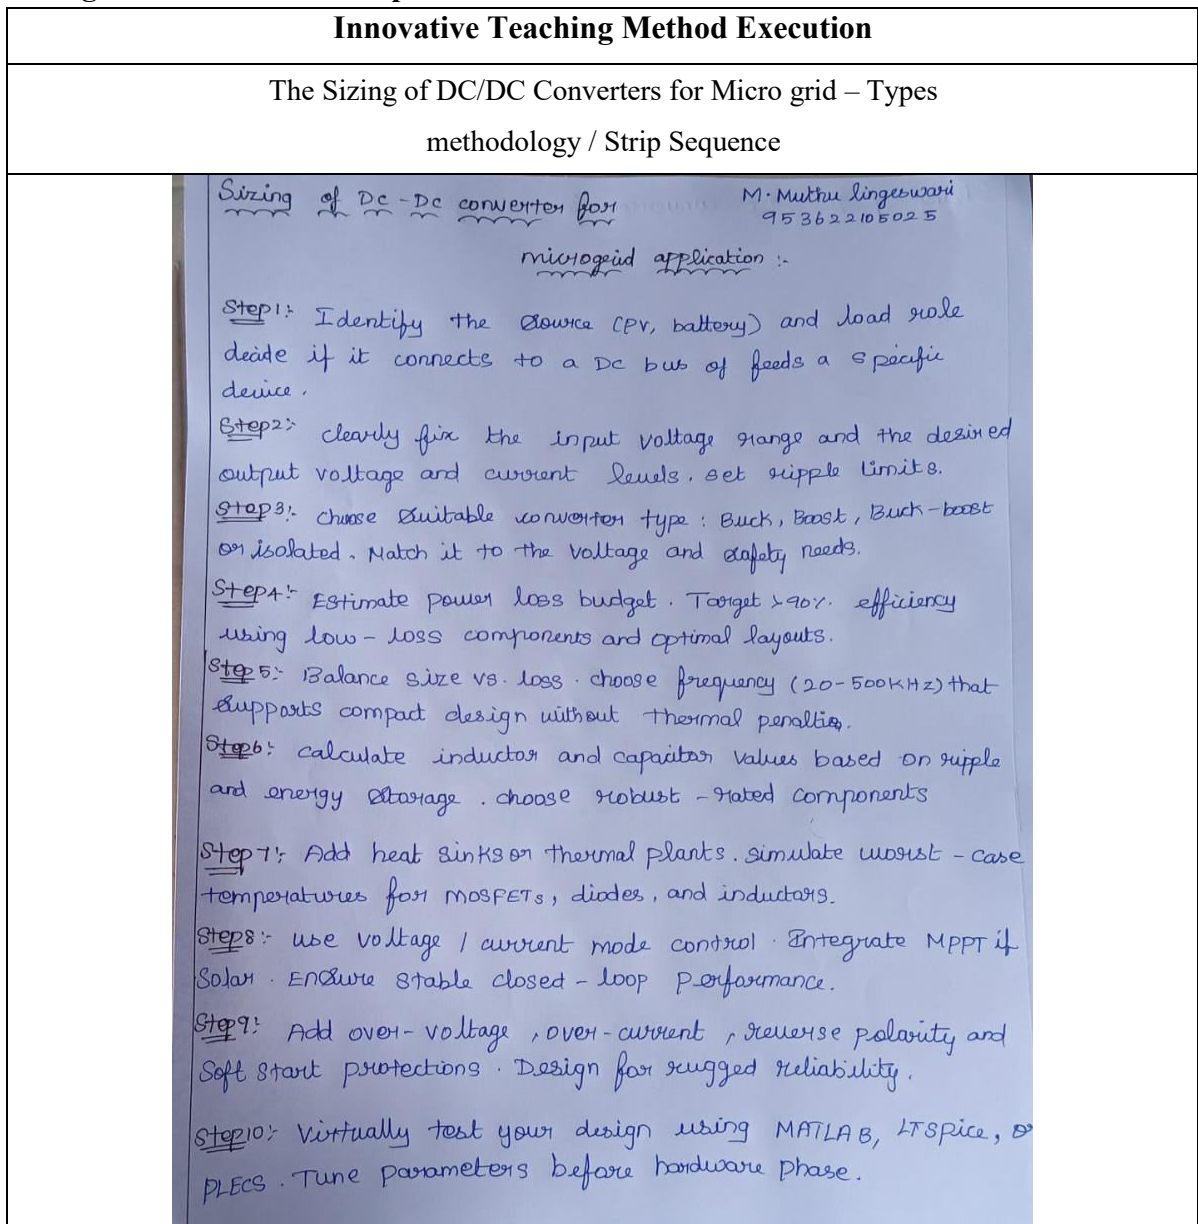 Innovative Teaching Method Execution
The Sizing of DC/DC Converters for Micro grid – Types
methodology / Strip Sequence
Sizing of DC - DC converter for
M. Muthu lingeswari
953622105025
microgrid application :-
Step1:- Identify the source (PV, battery) and load role
decide if it connects to a DC bus of feeds a specific
device.
Step2:- clearly fix the input voltage range and the desired
output voltage and current levels. set ripple limits.
Step3:- choose suitable converter type : Buck, Boost, Buck-boost
or isolated. Match it to the voltage and safety needs.
Step4:- Estimate power loss budget. Target >90% efficiency
using low - loss components and optimal layouts.
Step5:- Balance size vs. loss. choose frequency (20-500KHz) that
supports compact design without thermal penaltie.
Step6:- calculate inductor and capacitor values based on ripple
and energy storage. choose robust - rated components
Step7:- Add heat sinks or thermal plants. simulate worst - case
temperatures for MOSFETs, diodes, and inductors.
Step8:- use voltage / current mode control. Integrate MPPT if
Solar. Ensure stable closed - loop performance.
Step9:- Add over-voltage, over-current, reverse polarity and
Soft start protections. Design for rugged reliability.
Step10:- Virtually test your design using MATLAB, LTSpice, o
PLECS. Tune parameters before hardware phase.